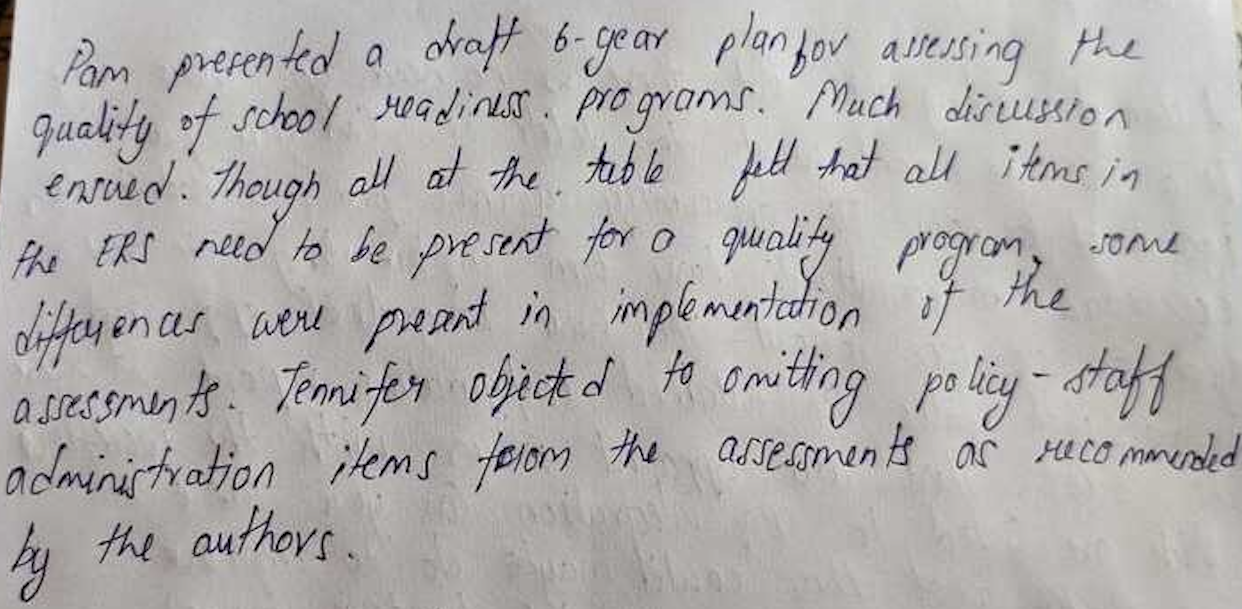 Pam presented a draft 6-year plan for assessing the
quality of school readiness. programs. Much discussion
ensued. Though all at the. table felt that all items in
the ERS need to be present for a quality program, some
differences were present in implementation of the
assessments. Jennifer objected to omitting policy-staff
administration items from the assessments as recommended
by the authors.